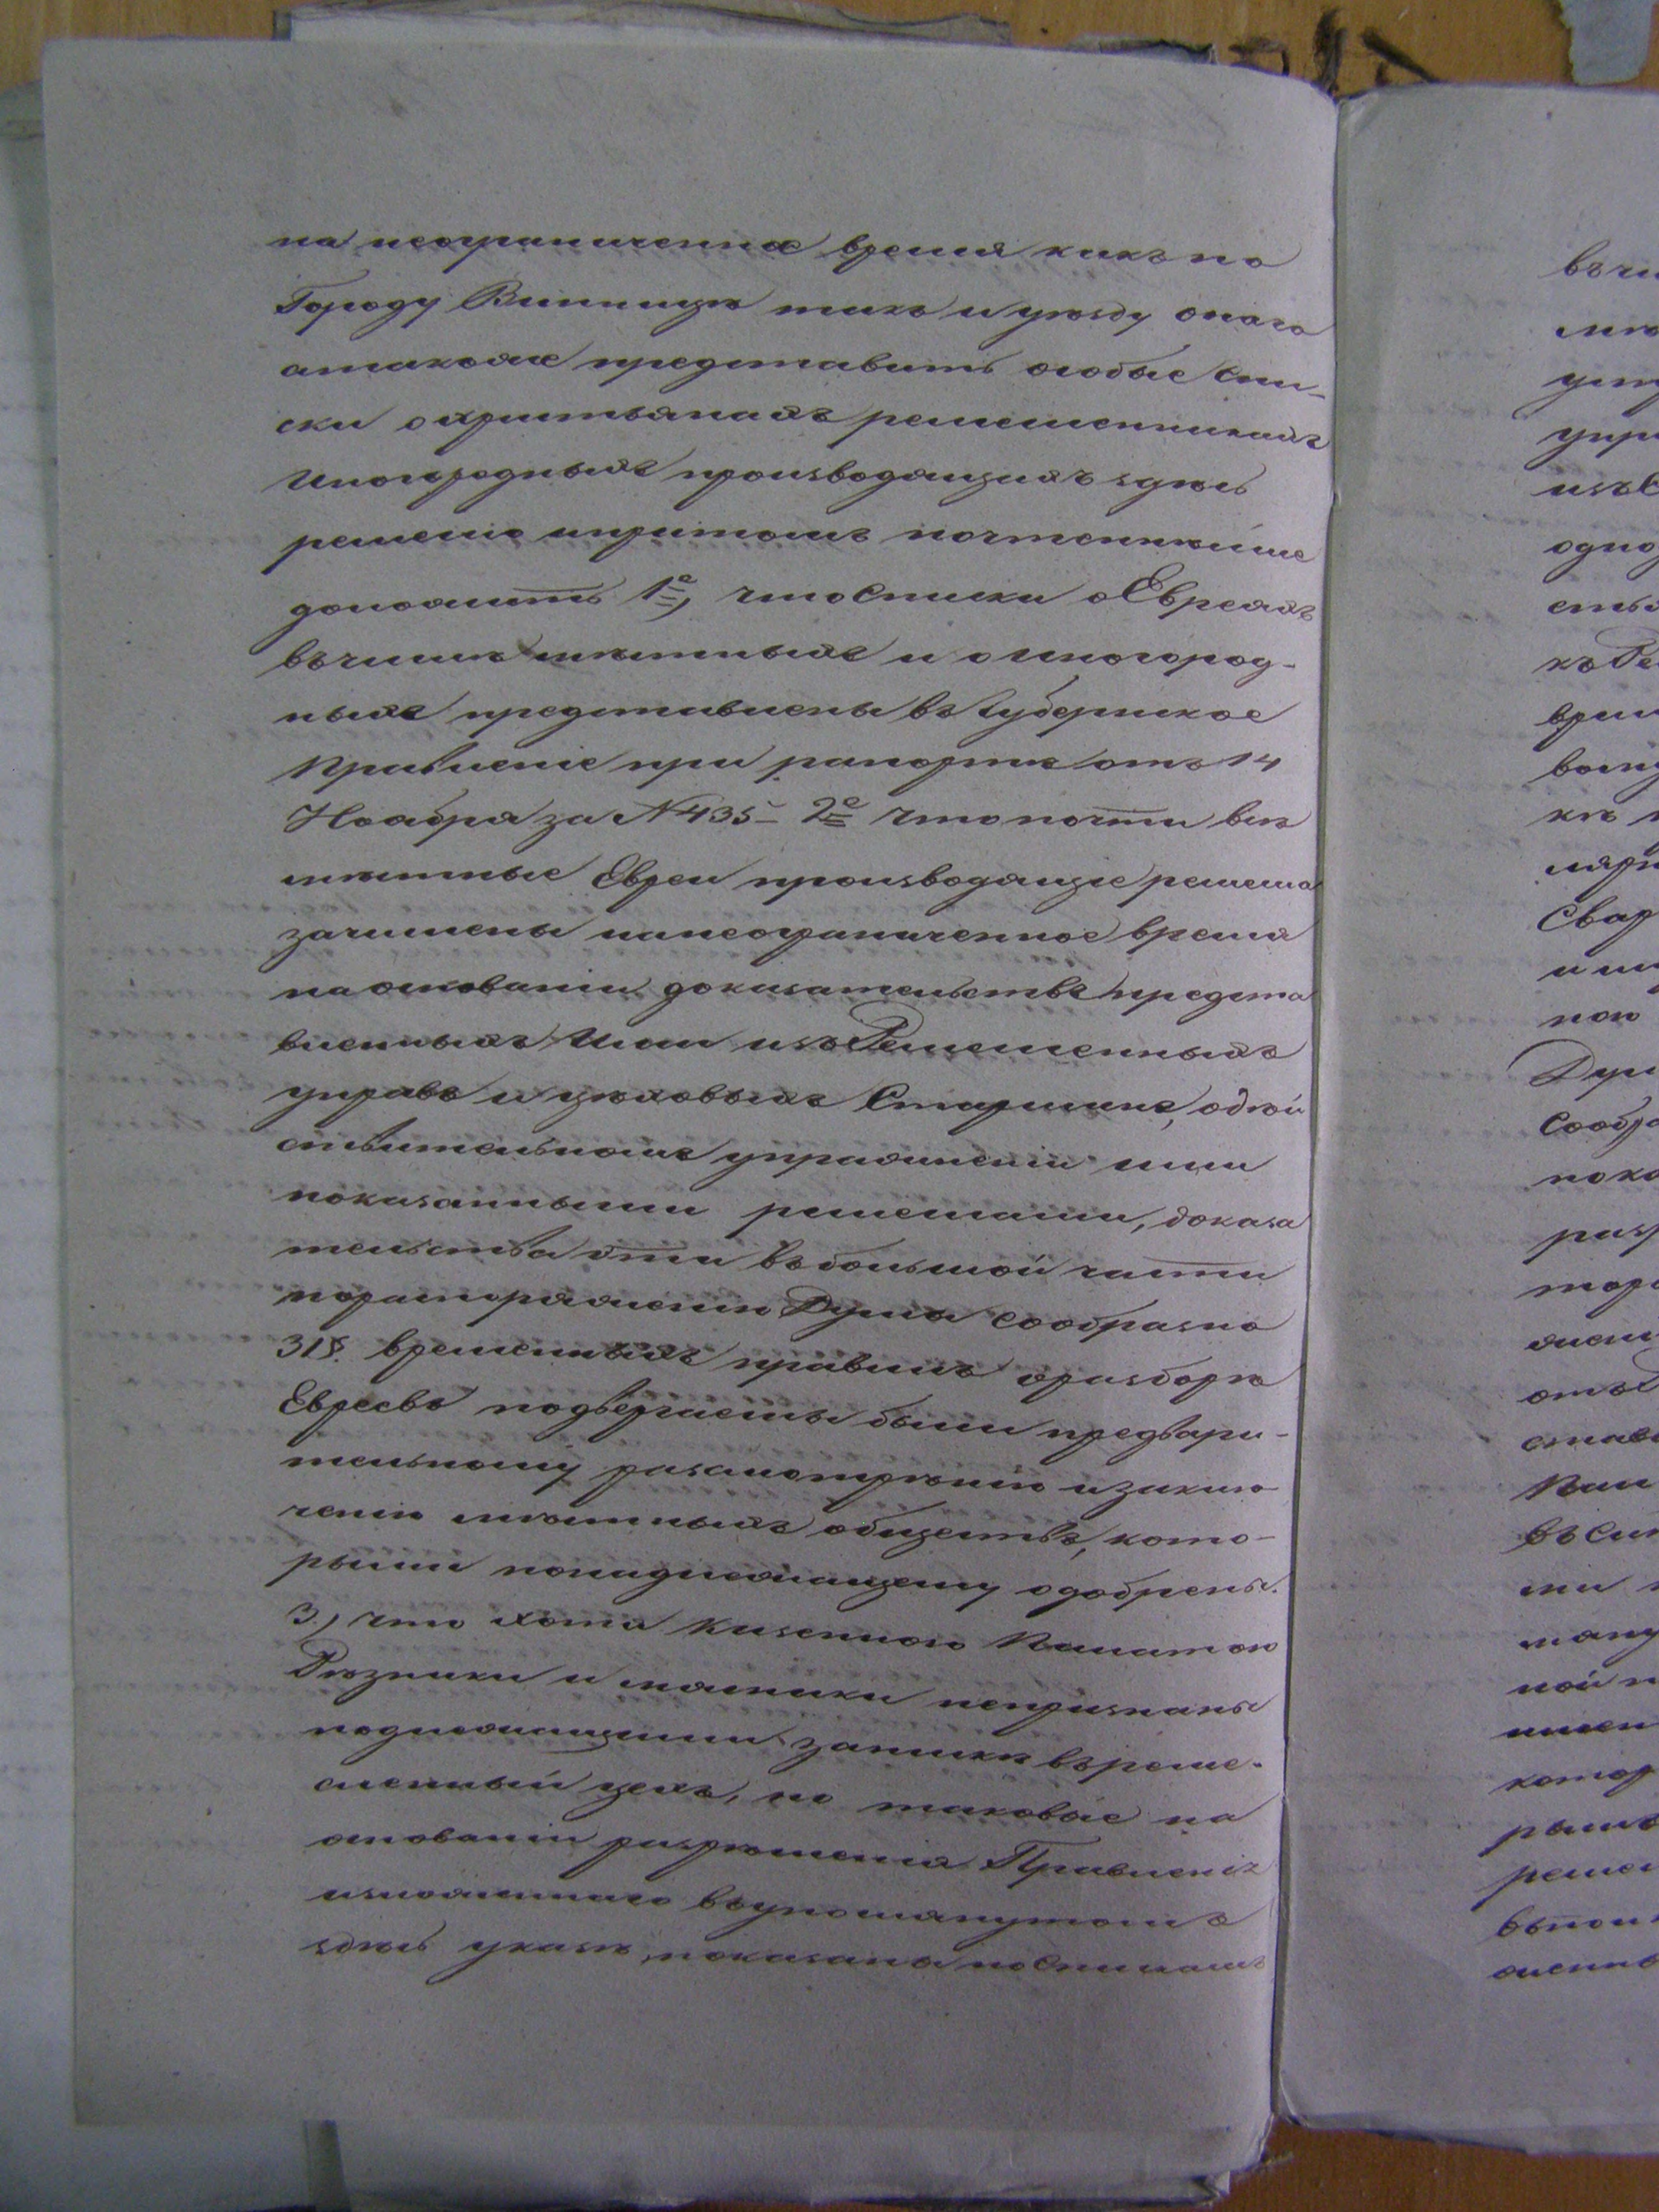 на неограниченное время какъ по
Городу Винницѣ такъ и уѣзду онаго
атакже представить особые спи-
ски охристьянахъ ремесленникахъ
Иногородныхъ производящихъ здѣсь
ремесло ипритомъ почтеннѣйше
доложить 1е, что Списки о Евреяхъ
въчислѣ мѣстныхъ и о Иногород-
ныхъ представлены въ Губернское
Правленіе при рапортѣ отъ 14
Ноября за № 435 – 2е что почти всѣ
мѣстные Евреи производящіе ремесла
зачислены нанеограниченное время
наоснованіи доказательствъ предста
вленныхъ Ими изъ Ремесленныхъ
управъ и цѣховыхъ Старшинъ, одѣй
ствительномъ упражненіи ими
показанными ремеслами, доказа
тельства эти въбольшой части
порапоряженію Думы сообразно
31§. временныхъ правилъ оразборѣ
Евреевъ подвергаемы были предвари-
тельному разсмотрѣнію изаклю-
ченію мѣстныхъ обществъ, кото-
рыми понадлежащему одобрены.
3, что хотя Казенною Палатою
Рѣзники и непризнаны
подлежащими запискѣ въреме-
сленный цехъ, но таковые на
основаніи разрѣшенія Правленія
изложеннаго въупомянутомъ
здѣсь указѣ, показаны поСпискамъ
въчи
уст
упр
изъС
одно
ство
къ Ре
вре
Свар
Дум
сообр
пока
раз
отъ
Пал
въ
ной
котор
рым
ремес